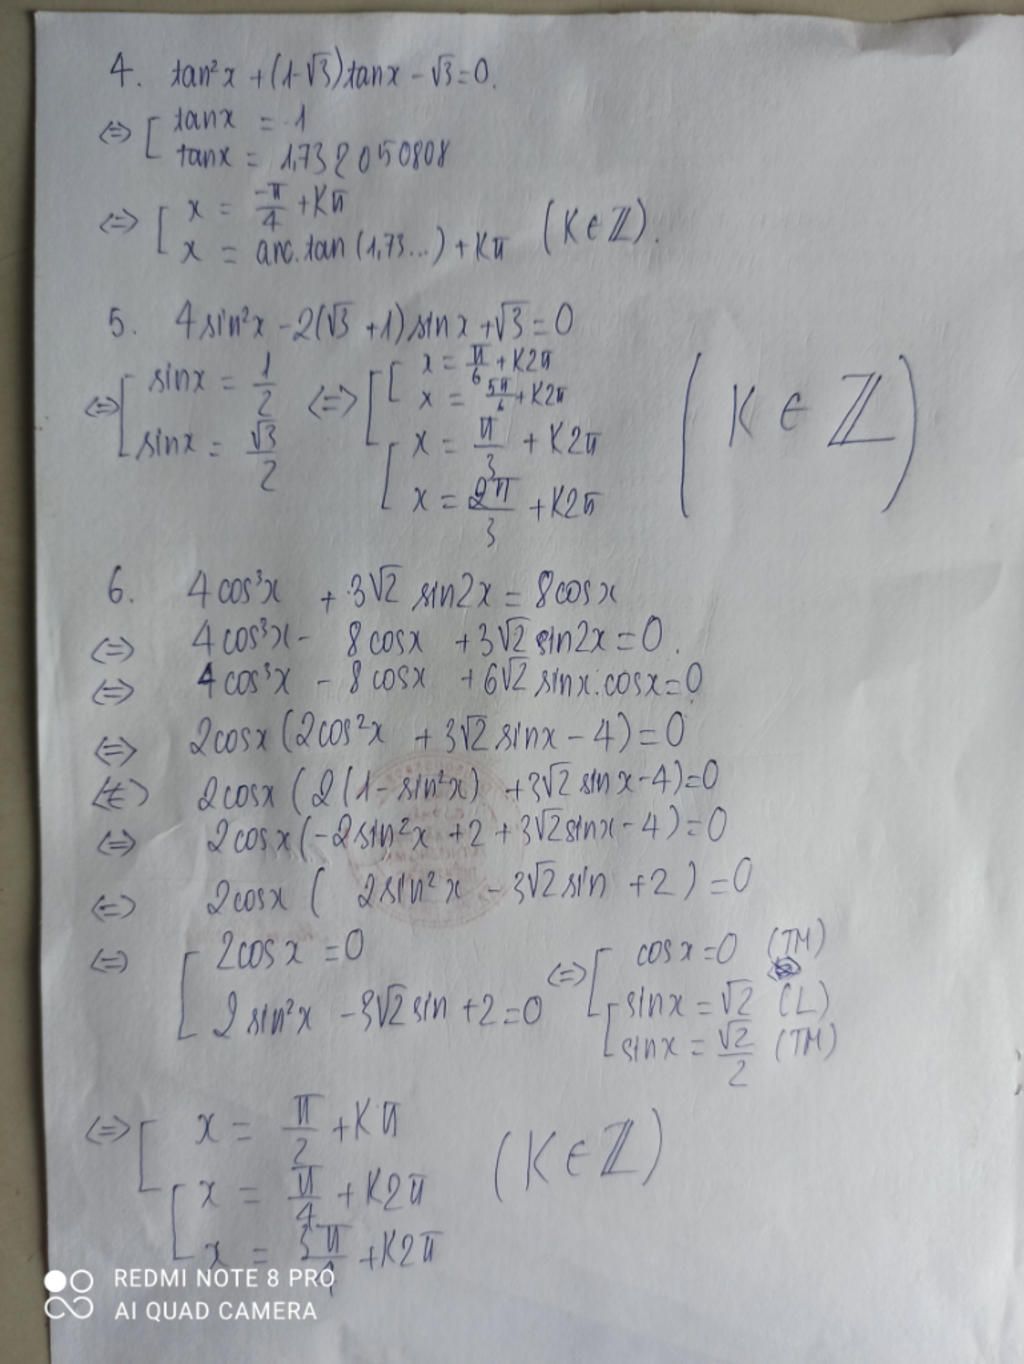 4. tan²x + (1-√3)tanx - √3=0.
<=> [ tanx = -1
tanx = 1,732050808
<=> [ x = -π/4 + Kπ
x = arc.tan (1,73...) + Kπ (K∈ℤ).
5. 4sin²x - 2(√3 +1)sinx + √3 = 0
<=> [ sinx = 1/2 <=> [ [ x = π/6 + K2π
x = 5π/6 + K2π
sinx = √3/2 [ x = π/3 + K2π
x = 2π/3 + K2π
(K ∈ ℤ)
6. 4cos³x + 3√2 sin2x = 8cosx
<=> 4cos³x - 8cosx + 3√2 sin2x = 0.
<=> 4cos³x - 8cosx + 6√2 sinx.cosx=0
<=> 2cosx (2cos²x + 3√2 sinx - 4) = 0
<=> 2cosx (2(1-sin²x) + 3√2 sinx-4)=0
<=> 2cosx (-2sin²x + 2 + 3√2sinx - 4) = 0
<=> 2cosx ( 2sin²x - 3√2sin + 2 ) = 0
<=> [ 2cosx = 0 <=> [ cosx = 0 (TM)
2sin²x - 3√2sin + 2 = 0 [ sinx = √2 (L)
sinx = √2/2 (TM)
<=> [ x = π/2 + Kπ (K∈ℤ)
[ x = π/4 + K2π
x = 3π/4 + K2π
REDMI NOTE 8 PRO
AI QUAD CAMERA